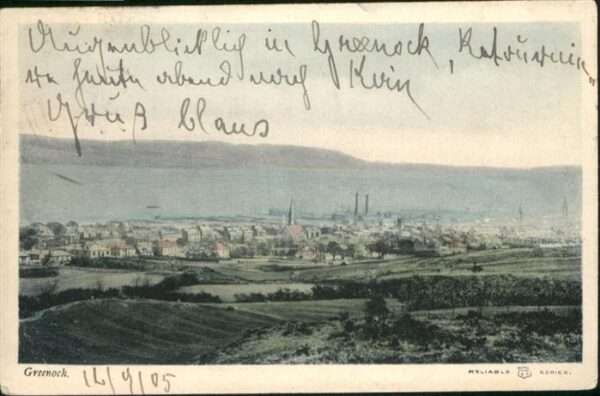 Augenblicklich in Greenock, Retournie„
re heute abend nach
Gruß Claus
Greenock. 14/9/05
RELIABLE SERIES.